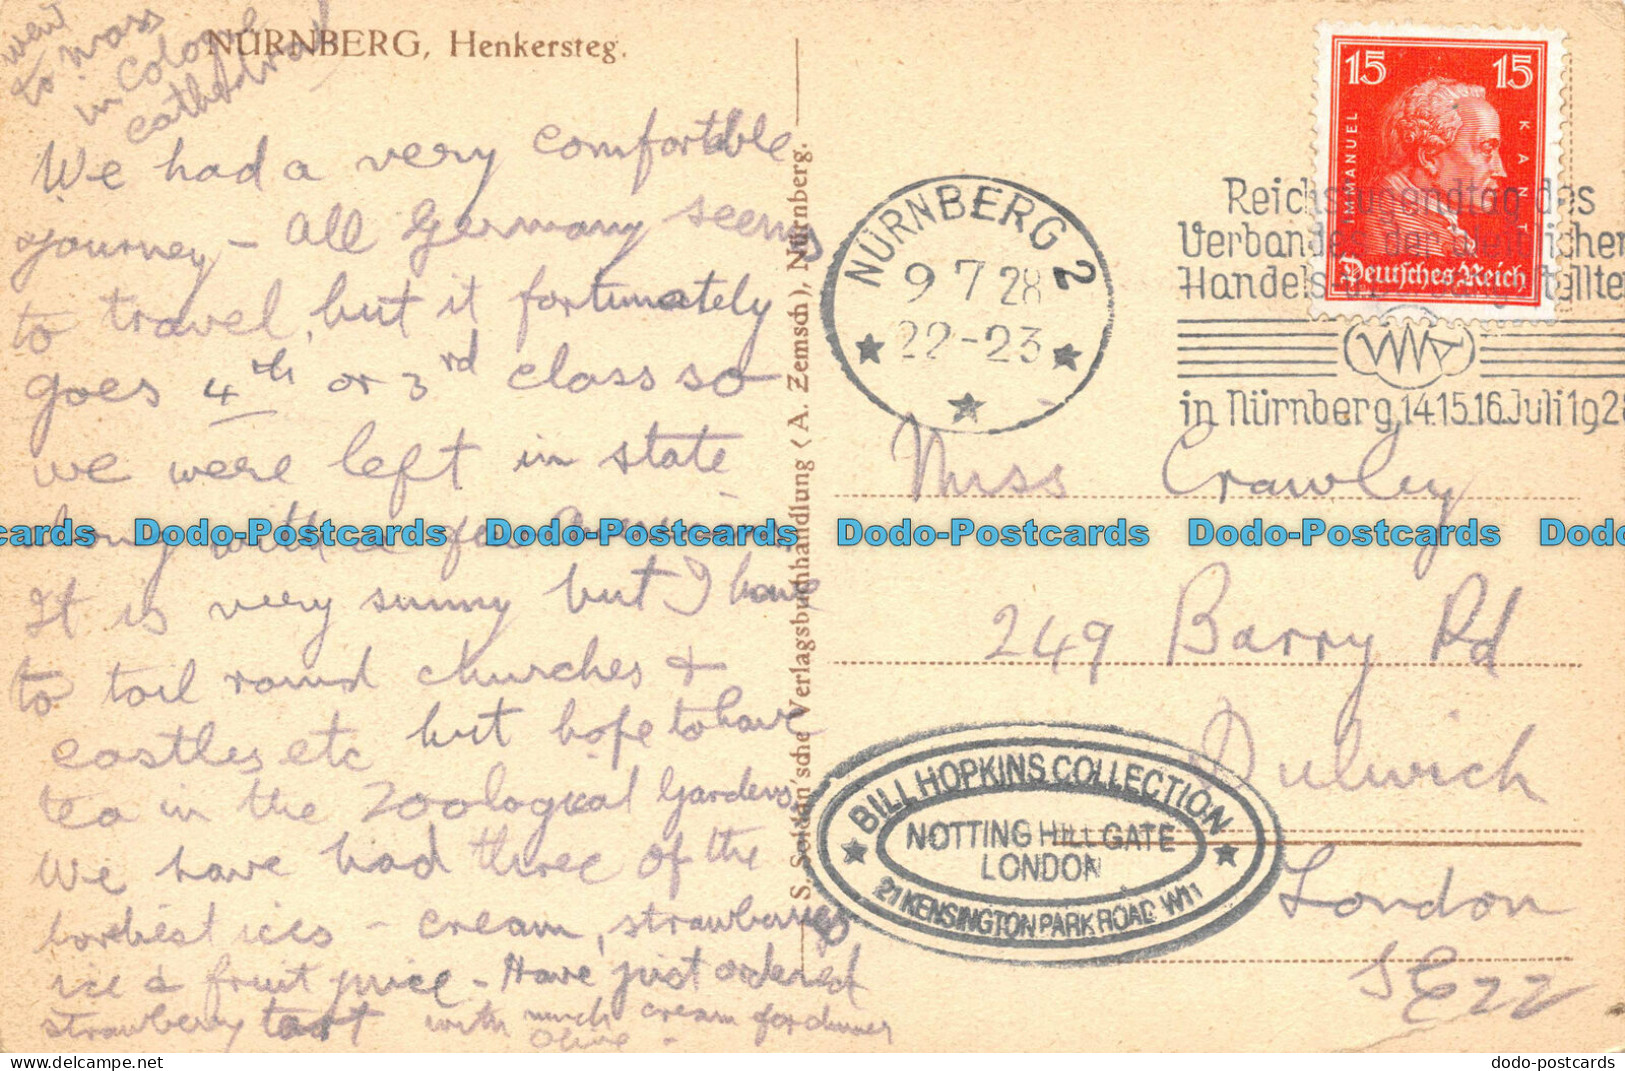 went
to Mass
in Cologne
cathedral
NÜRNBERG, Henkersteg.
We had a very comfortable
journey – All Germany seems
to travel, but it fortunately
goes 4th or 3rd class so
we were left in state
along with a few Americans
It is very sunny but I have
to toil round churches &
castles etc but hope to have
tea in the Zoological Gardens.
We have had three of the
loveliest ices – cream, strawberries
ice & fruit juice – Have just ordered
strawberry tart with much cream for dinner
Olive –
S. Soldan'sche Verlagsbuchhandlung (A. Zemsch), Nürnberg.
15 15
IMMANUEL KANT
Deutsches Reich
NÜRNBERG 2
9 7 28
22-23
Reichsjugendtag des
Verbandes der weiblichen
Handels-
in Nürnberg, 14.15.16. Juli 1928
Miss Crawley
249 Barry Rd
Dulwich
London
S E 22
BILL HOPKINS COLLECTION
NOTTING HILL GATE
LONDON
21 KENSINGTON PARK ROAD W11
Dodo-Postcards Dodo-Postcards Dodo-Postcards Dodo-Postcards
dodo-postcards.com